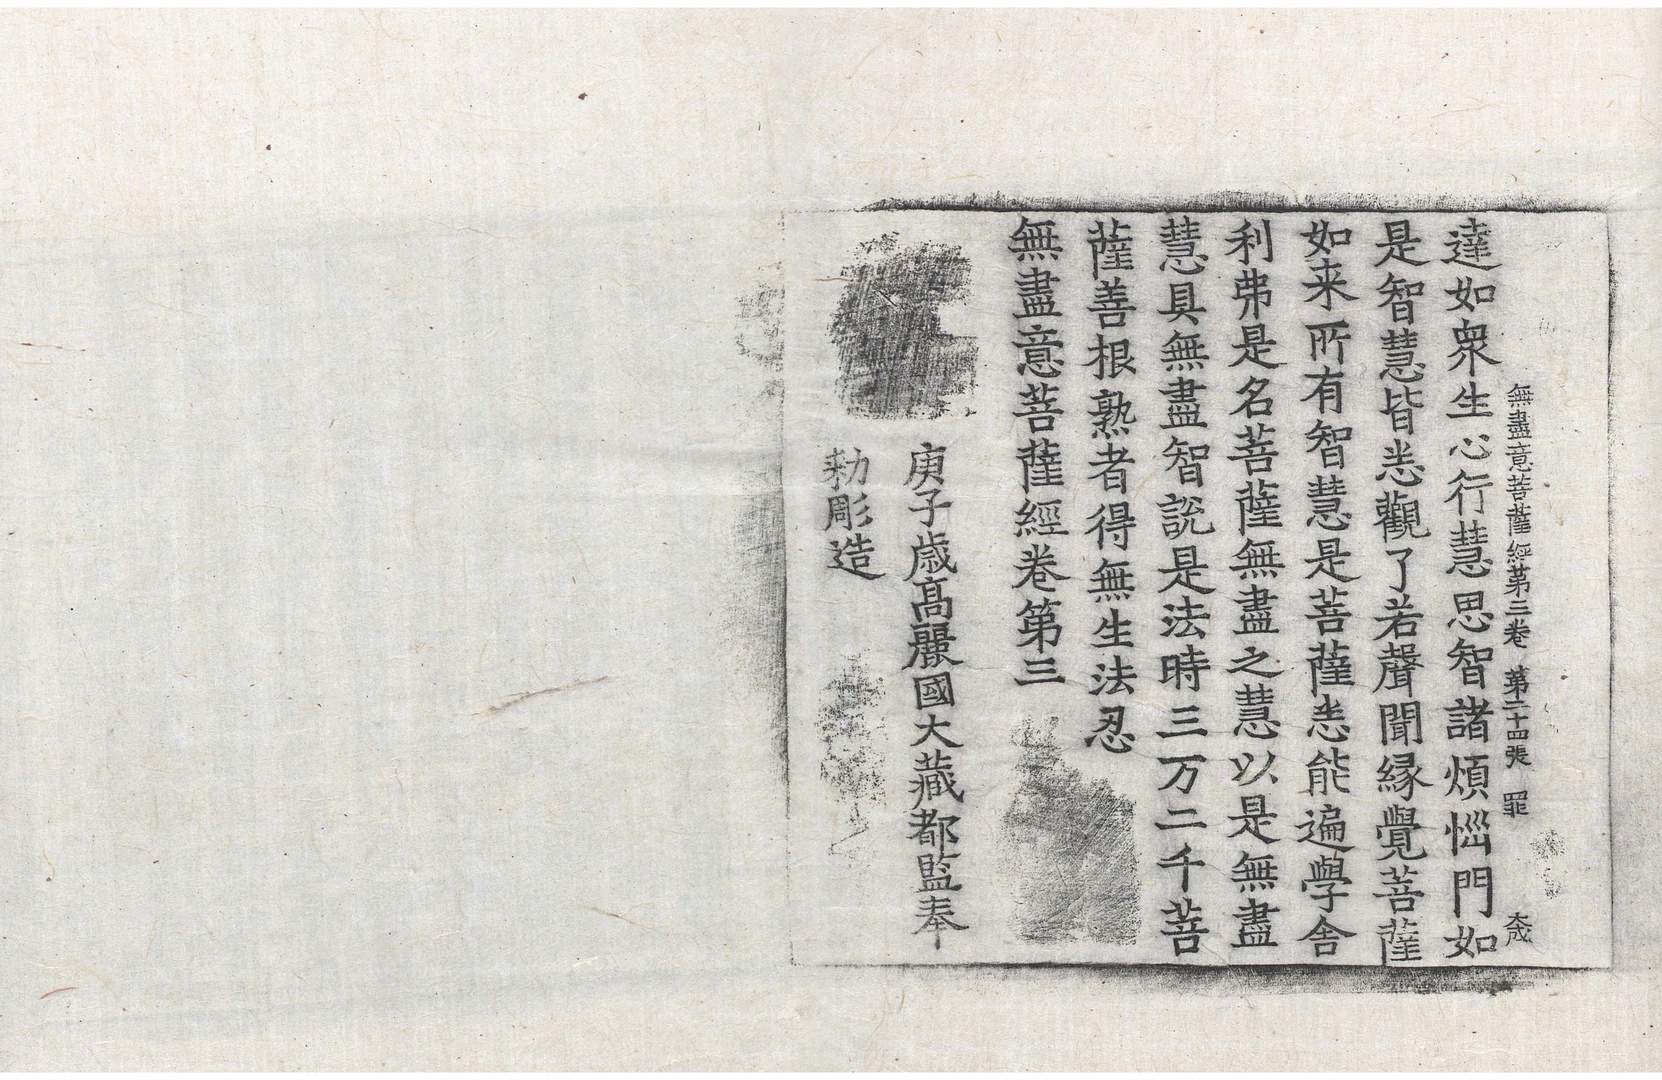 無盡意菩薩經第三卷 第二十四張 罪 大成
達如衆生心行慧思智諸煩惱門如
是智慧皆悉觀了若聲聞縁覺菩薩
如来所有智慧是菩薩悉能遍學舍
利弗是名菩薩無盡之慧以是無盡
慧具無盡智說是法時三万二千菩
薩善根熟者得無生法忍
無盡意菩薩經卷第三
庚子歳高麗國大藏都監奉
勅彫造